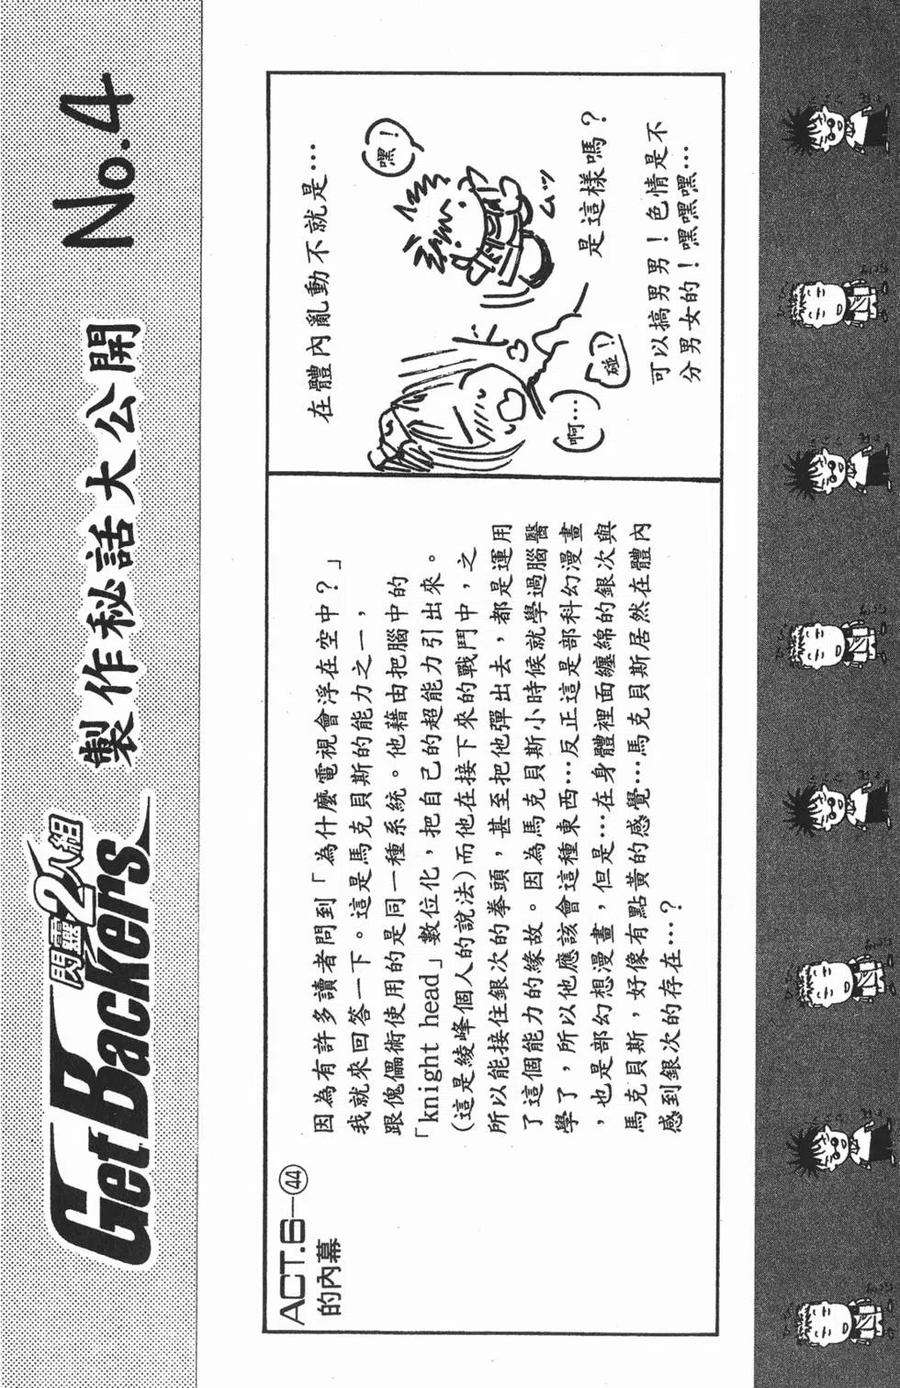 閃靈2人組
GetBackers
製作秘話大公開
No.4
ACT.6—㊹
的內幕
因為有許多讀者問到「為什麼電視會浮在空中？」
我就來回答一下。這是馬克貝斯的能力之一，
跟傀儡術使用的是同一種系統。他藉由把腦中的
「knight head」數位化，把自己的超能力引出來。
(這是綾峰個人的說法)而他在接下來的戰鬥中，之
所以能接住銀次的拳頭，甚至把他彈出去，都是運用
了這個能力的緣故。因為馬克貝斯小時候就學過腦醫
學了，所以他應該會這種東西…反正這是部科幻漫畫
，也是部幻想漫畫，但是…在身體裡面纏綿的銀次與
馬克貝斯，好像有點黃的感覺…馬克貝斯居然在體內
感到銀次的存在…？
在體內亂動不就是…
嘿！
ムッ
啊…
碰！
是這樣嗎？
可以搞男男！色情是不
分男女的！嘿嘿嘿…